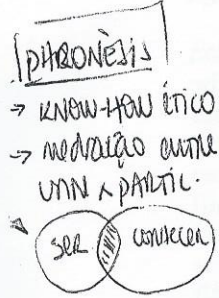 PHRONÈSIS
→ KNOW-HOW ÉTICO
→ mediação entre
UNIV x PARTIC.
SER CONHECER